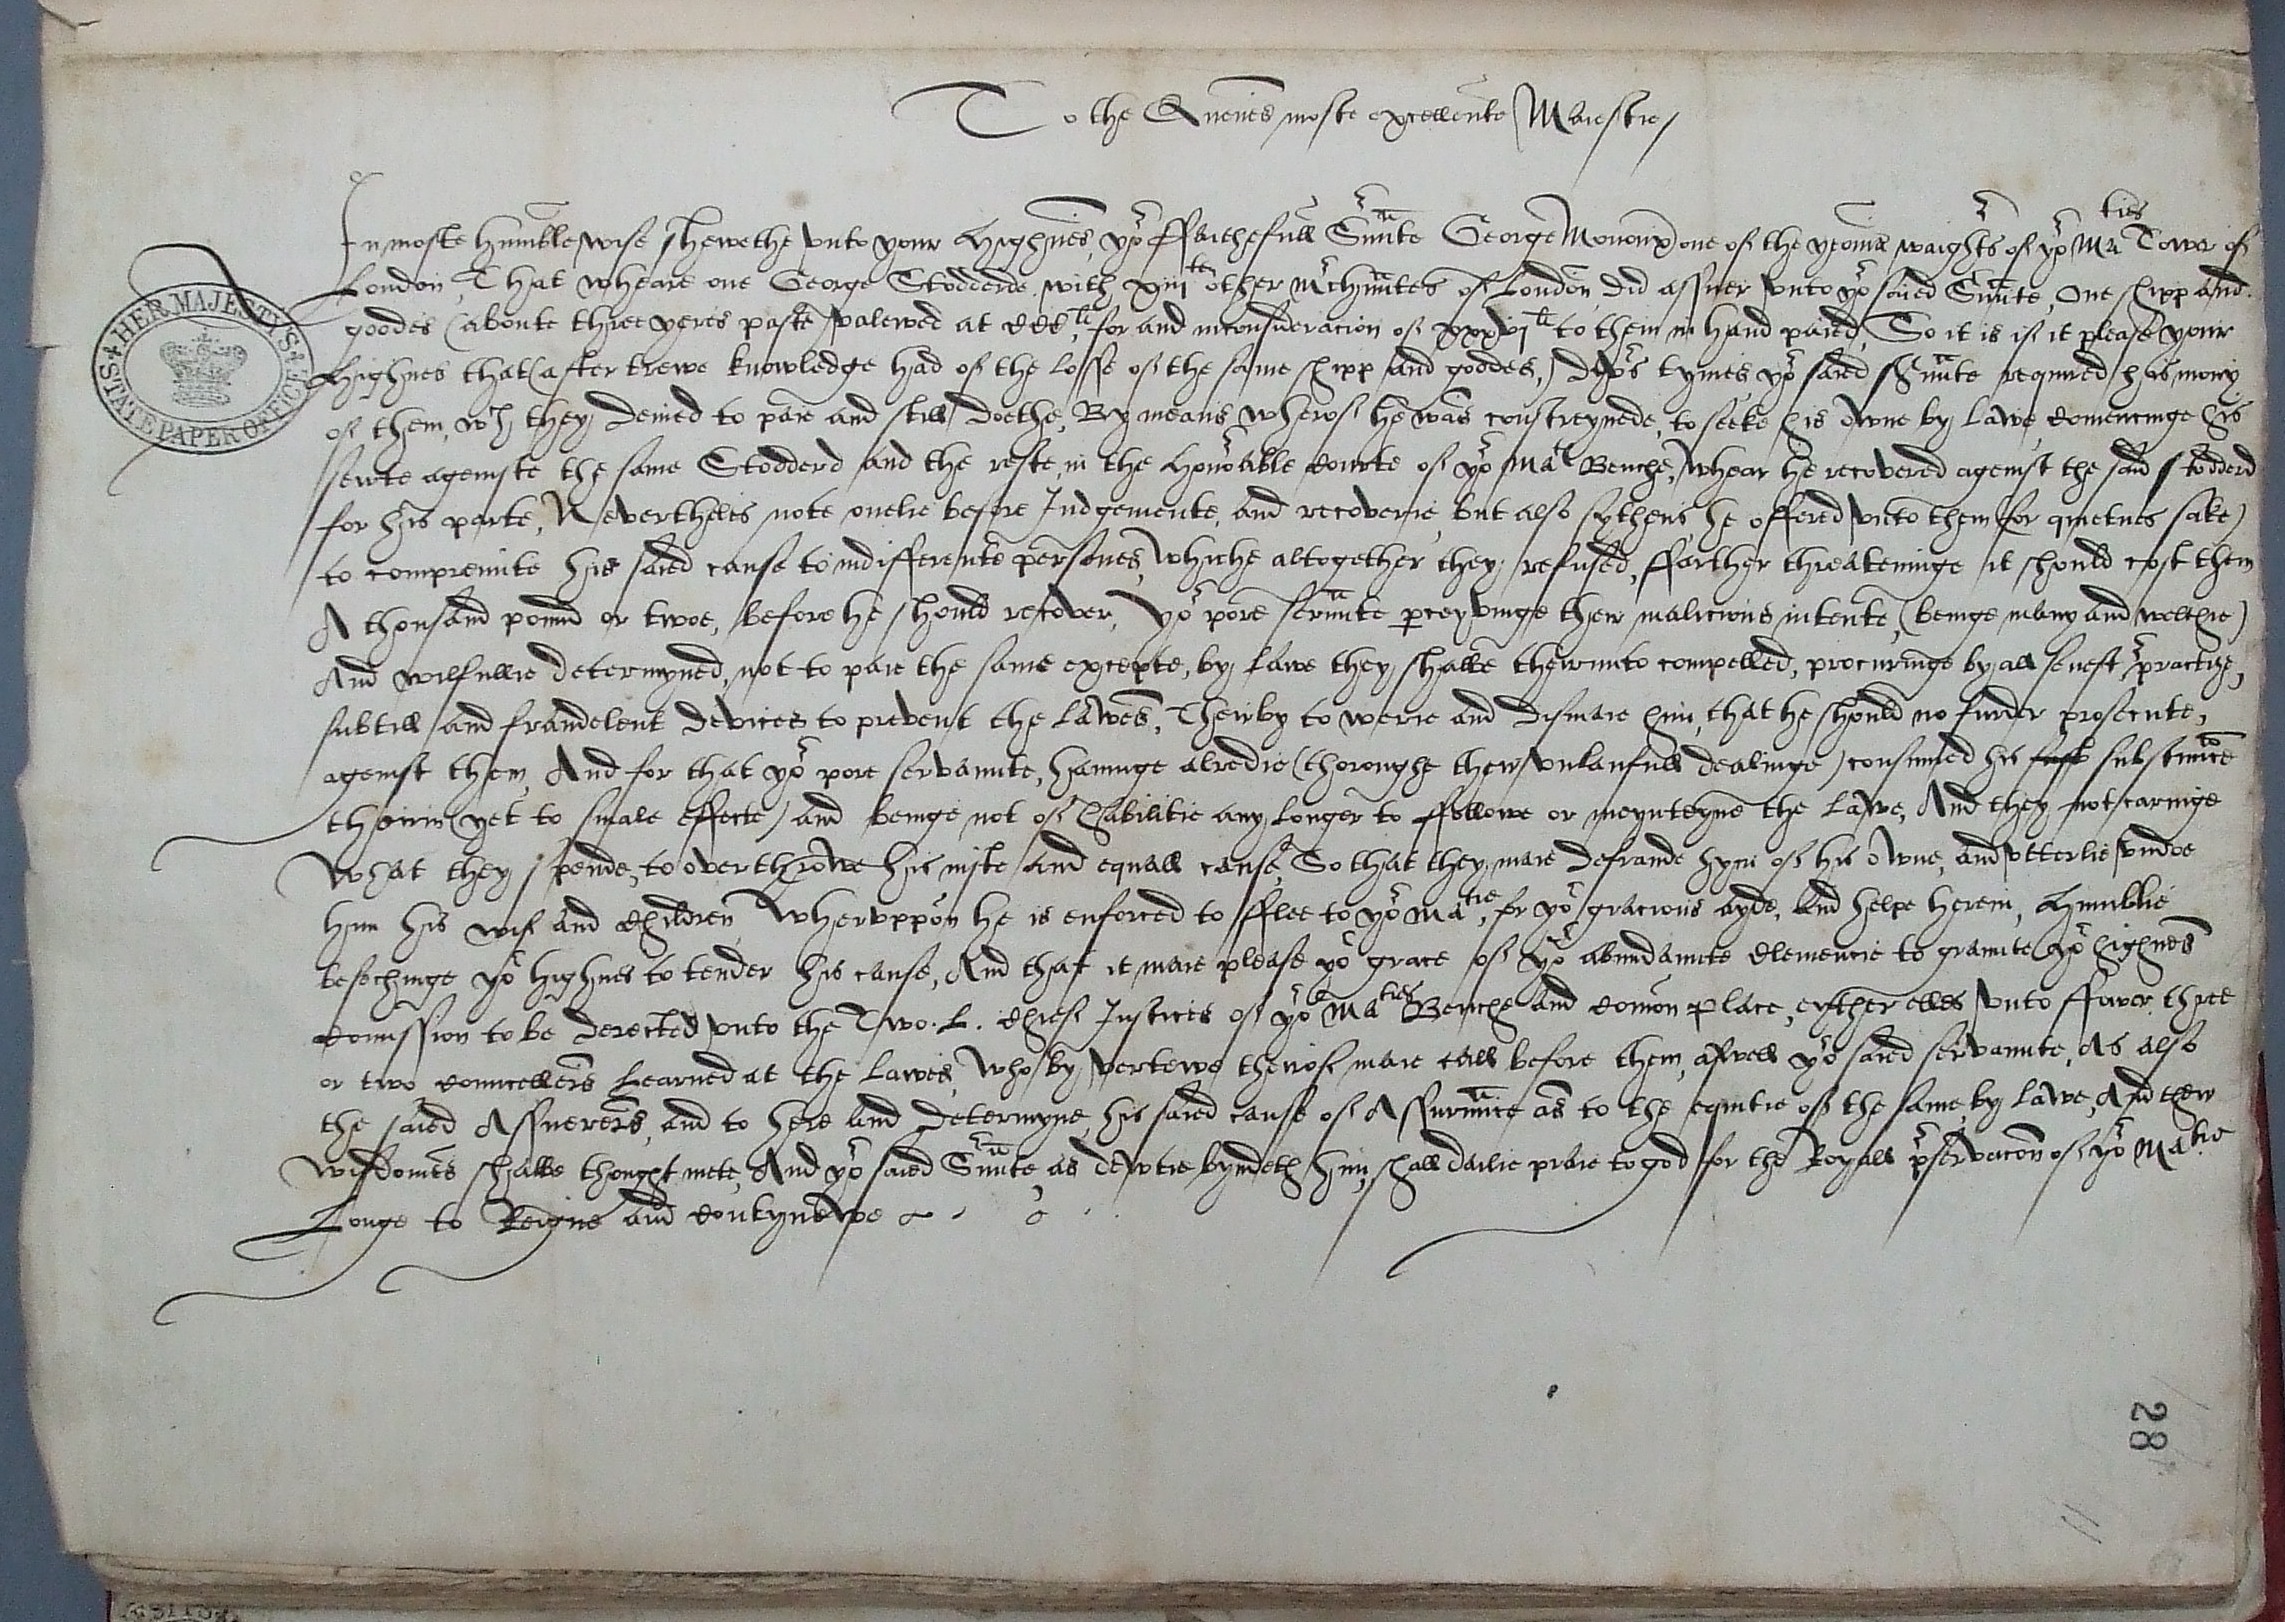 To the Quenes moste excellente Maiestie
In moste humble wise shewethe vnto your Highnes, yor ffaithefull Sruunte George Monoux one of the yeomē waighters of yor Maties Tower of
London, That wheare one George Stodderde with xiijte other mrchuntes of London did assuer vnto yor saied Sruunte, One shipp and
goodes (aboute three yeres paste) valewed at CCCli, for and in consideracion of xxxvjli to them in hand paied, So it is if it please your
Highnes that (after trewe knowledge had of the losse of the same shipp and goodes,) dyvrs tymes yor saied sruunte required his mony
of them, wch they denied to paie and still doethe, By means wherof he was constreynede, to seeke his owne by lawe comencinge his
sewte ageinste the same Stodderd and the reste, in the Honorable Courte of yor Mats Benche, whear he recovered ageinst the said Stodderd
for his parte, Nevertheles note onelie before Judgemente, and recoverie but also sythens he offered vnto them (for quietnes sake)
to compremite his saied cause to indifferente persones, whiche altogether they refused, ffarther threateninge it should cost them
A thousand pound or twoe, before he should recover, Yor pore seruunte pceyvinge their malicious intente, (beinge many and welthie)
And wilfullie determyned, not to paie the same excepte, by lawe they shalbe therunto compelled, procuringe by all senest practize,
subtill and fraudelent devices to prevent the lawes, Therby to werie and dismaie him, that he should no furder prosecute,
ageinst them, And for that yor pore servaunte, havinge alredie (thoroughe their vnlaufull dealinge) consumed his substaunce
therin (yet to smale effecte) and beinge not of habilitie any longer to ffollowe or meynteyne the lawe, And they not caringe
what they spende, to overthrowe his iuste and equall cause, So that they maie defraude hym of his owne, and vtterlie vndoe
him his wif and Children, Wheruppon he is enforced to fflee to yor Matie, for yor gracious ayde, and helpe herein, Humblie
besechinge yor highnes to tender his cause, And that it maie please yor grace of yor abundaunte Clemencie to graunte yor highnes
Comission to be derected vnto the Two. L. Chief Justices of yor Maties Benche and Comon place, eyther elles vnto ffower three
or two Councellers Learned at the lawes, who by vertewe therof maie call before them, aswell yor saied servaunte, As also
the saied Assuerers, and to here and determyne, his saied cause of Assuraunce as to the equitie of the same, by lawe, And their
wisdomes shalbe thought mete, And yor saied Sruunte, as dewtie byndeth him, shall dailie praie to god for the Royall prservacon of yor Matie
Longe to Reigne and Contynewe
HER MAJESTY'S STATE PAPER OFFICE
28